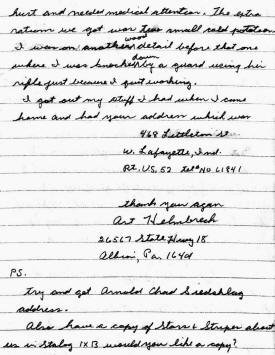 hurt and needed medical attention. The extra
rations we got was two small cold potatoes
I was on another wood detail before that one
where I was knocked down by a guard using his
rifle just because I quit working.
I got out my stuff I had when I came
home and had your address which was
468 Littleton St.
W. Lafayette, Ind.
Rt. US, 52 tel# NO 61841
thank you again
Art Helmbrech
26567 State Hwy 18
Albion, Pa 16401
PS.
try and get Arnold Chad
address.
Also have a copy of Stars & Stripes about
us in Stalag IX B would you like a copy?